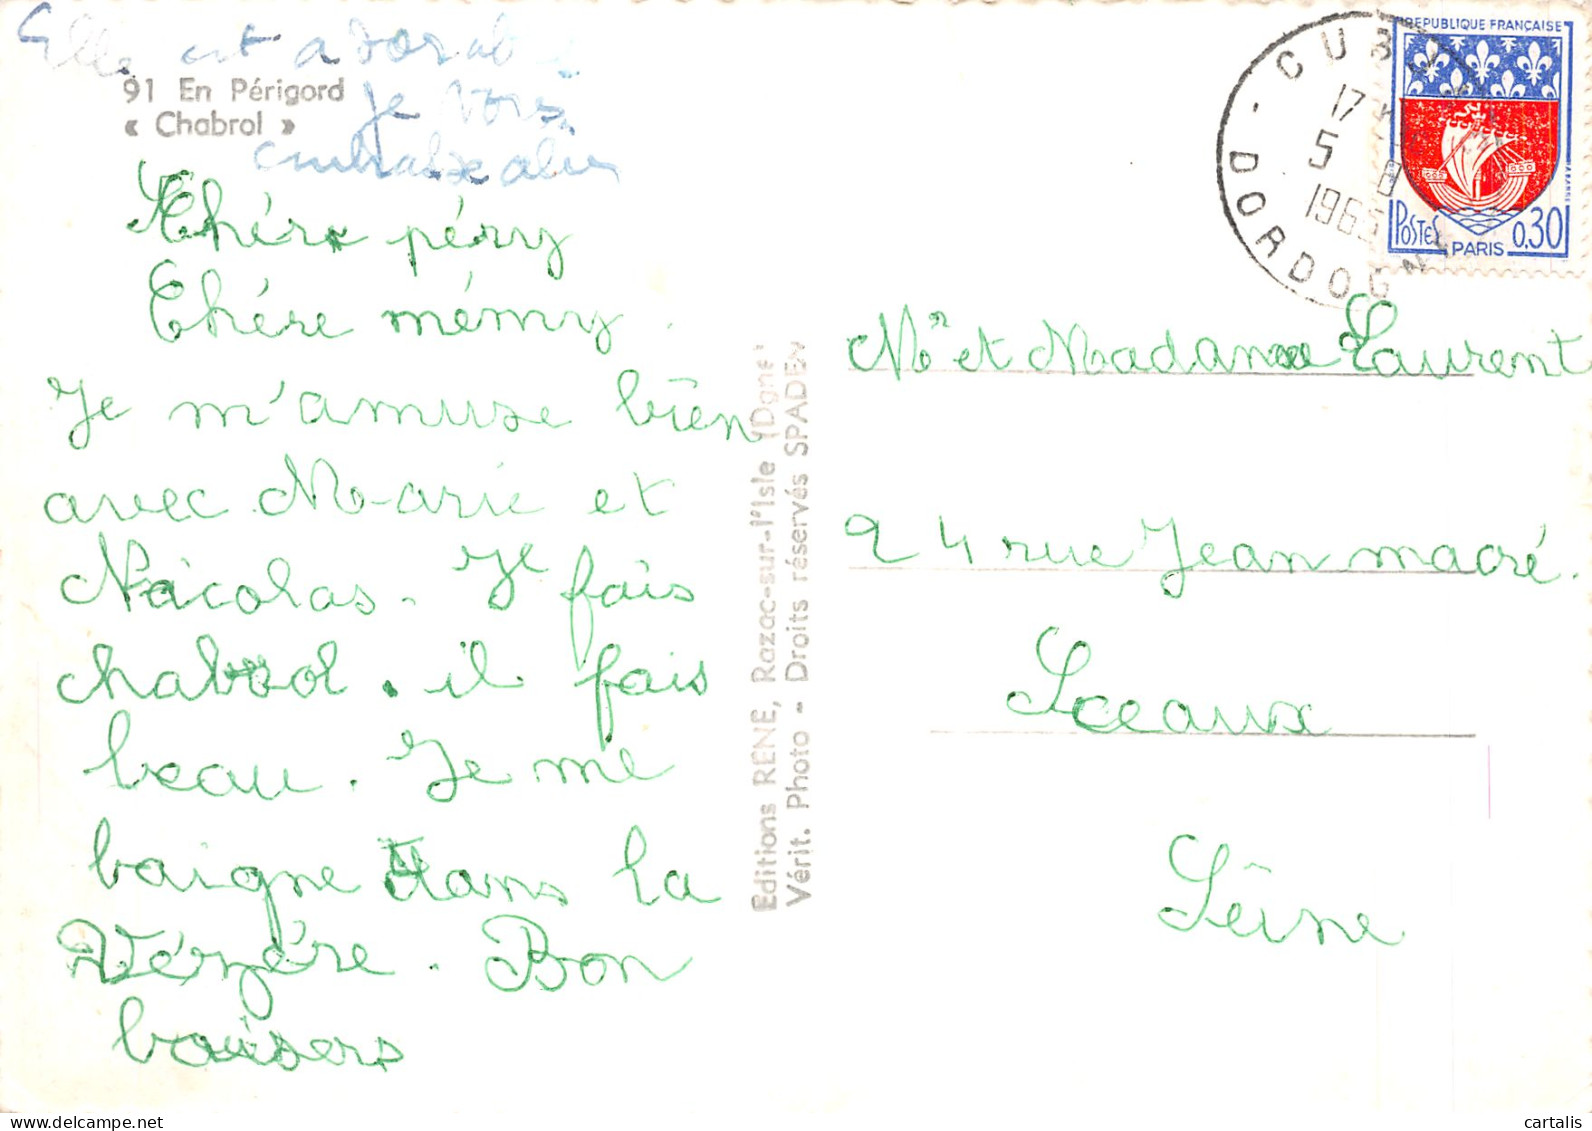 Elle est adorable
je vous
embrasse
91 En Périgord
« Chabrol »
Chére péry
Chére mémy.
Je m'amuse bien
avec Marie et
Nicolas. Je fais
chabrol. il fais
beau. Je me
baigne dans la
Vézére. Bon
baisers
Editions RENE, Razac-sur-l'Isle (Dgne)
Vérit. Photo - Droits réservés SPADEM
CUB
17 H
5 8
1965
DORDOGNE
REPUBLIQUE FRANÇAISE
POSTES
PARIS 0,30
Mr et Madame Laurent
24 rue Jean macré.
Sceaux
Seine
cartalis